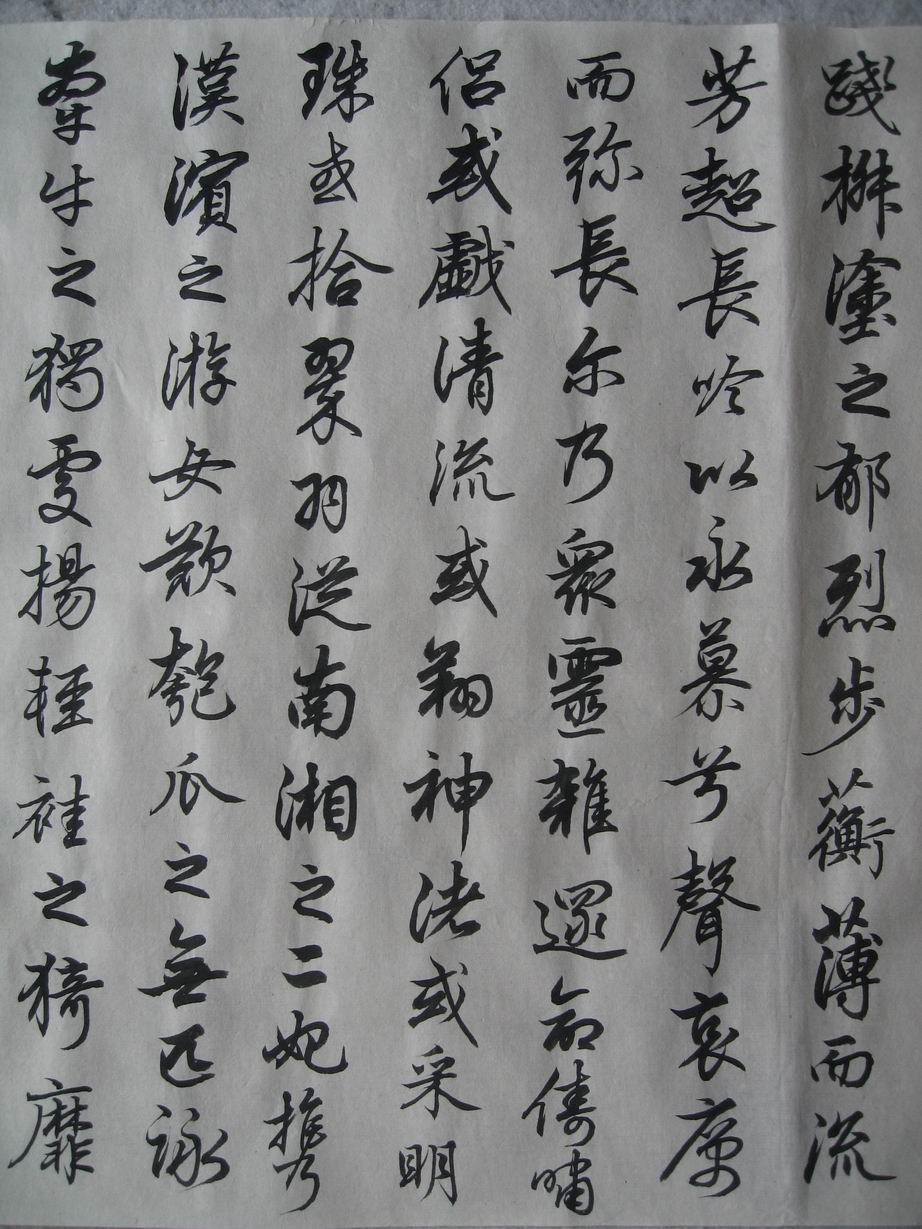 踐椒塗之郁烈步蘅薄而流
芳超長吟以永慕兮聲哀厲
而弥長尔乃眾靈雜遝命儔嘯
侶或戲清流或翔神渚或采明
珠或拾翠羽從南湘之二妃攜
漢濱之游女歎匏瓜之無匹詠
牽牛之獨處揚輕袿之猗靡